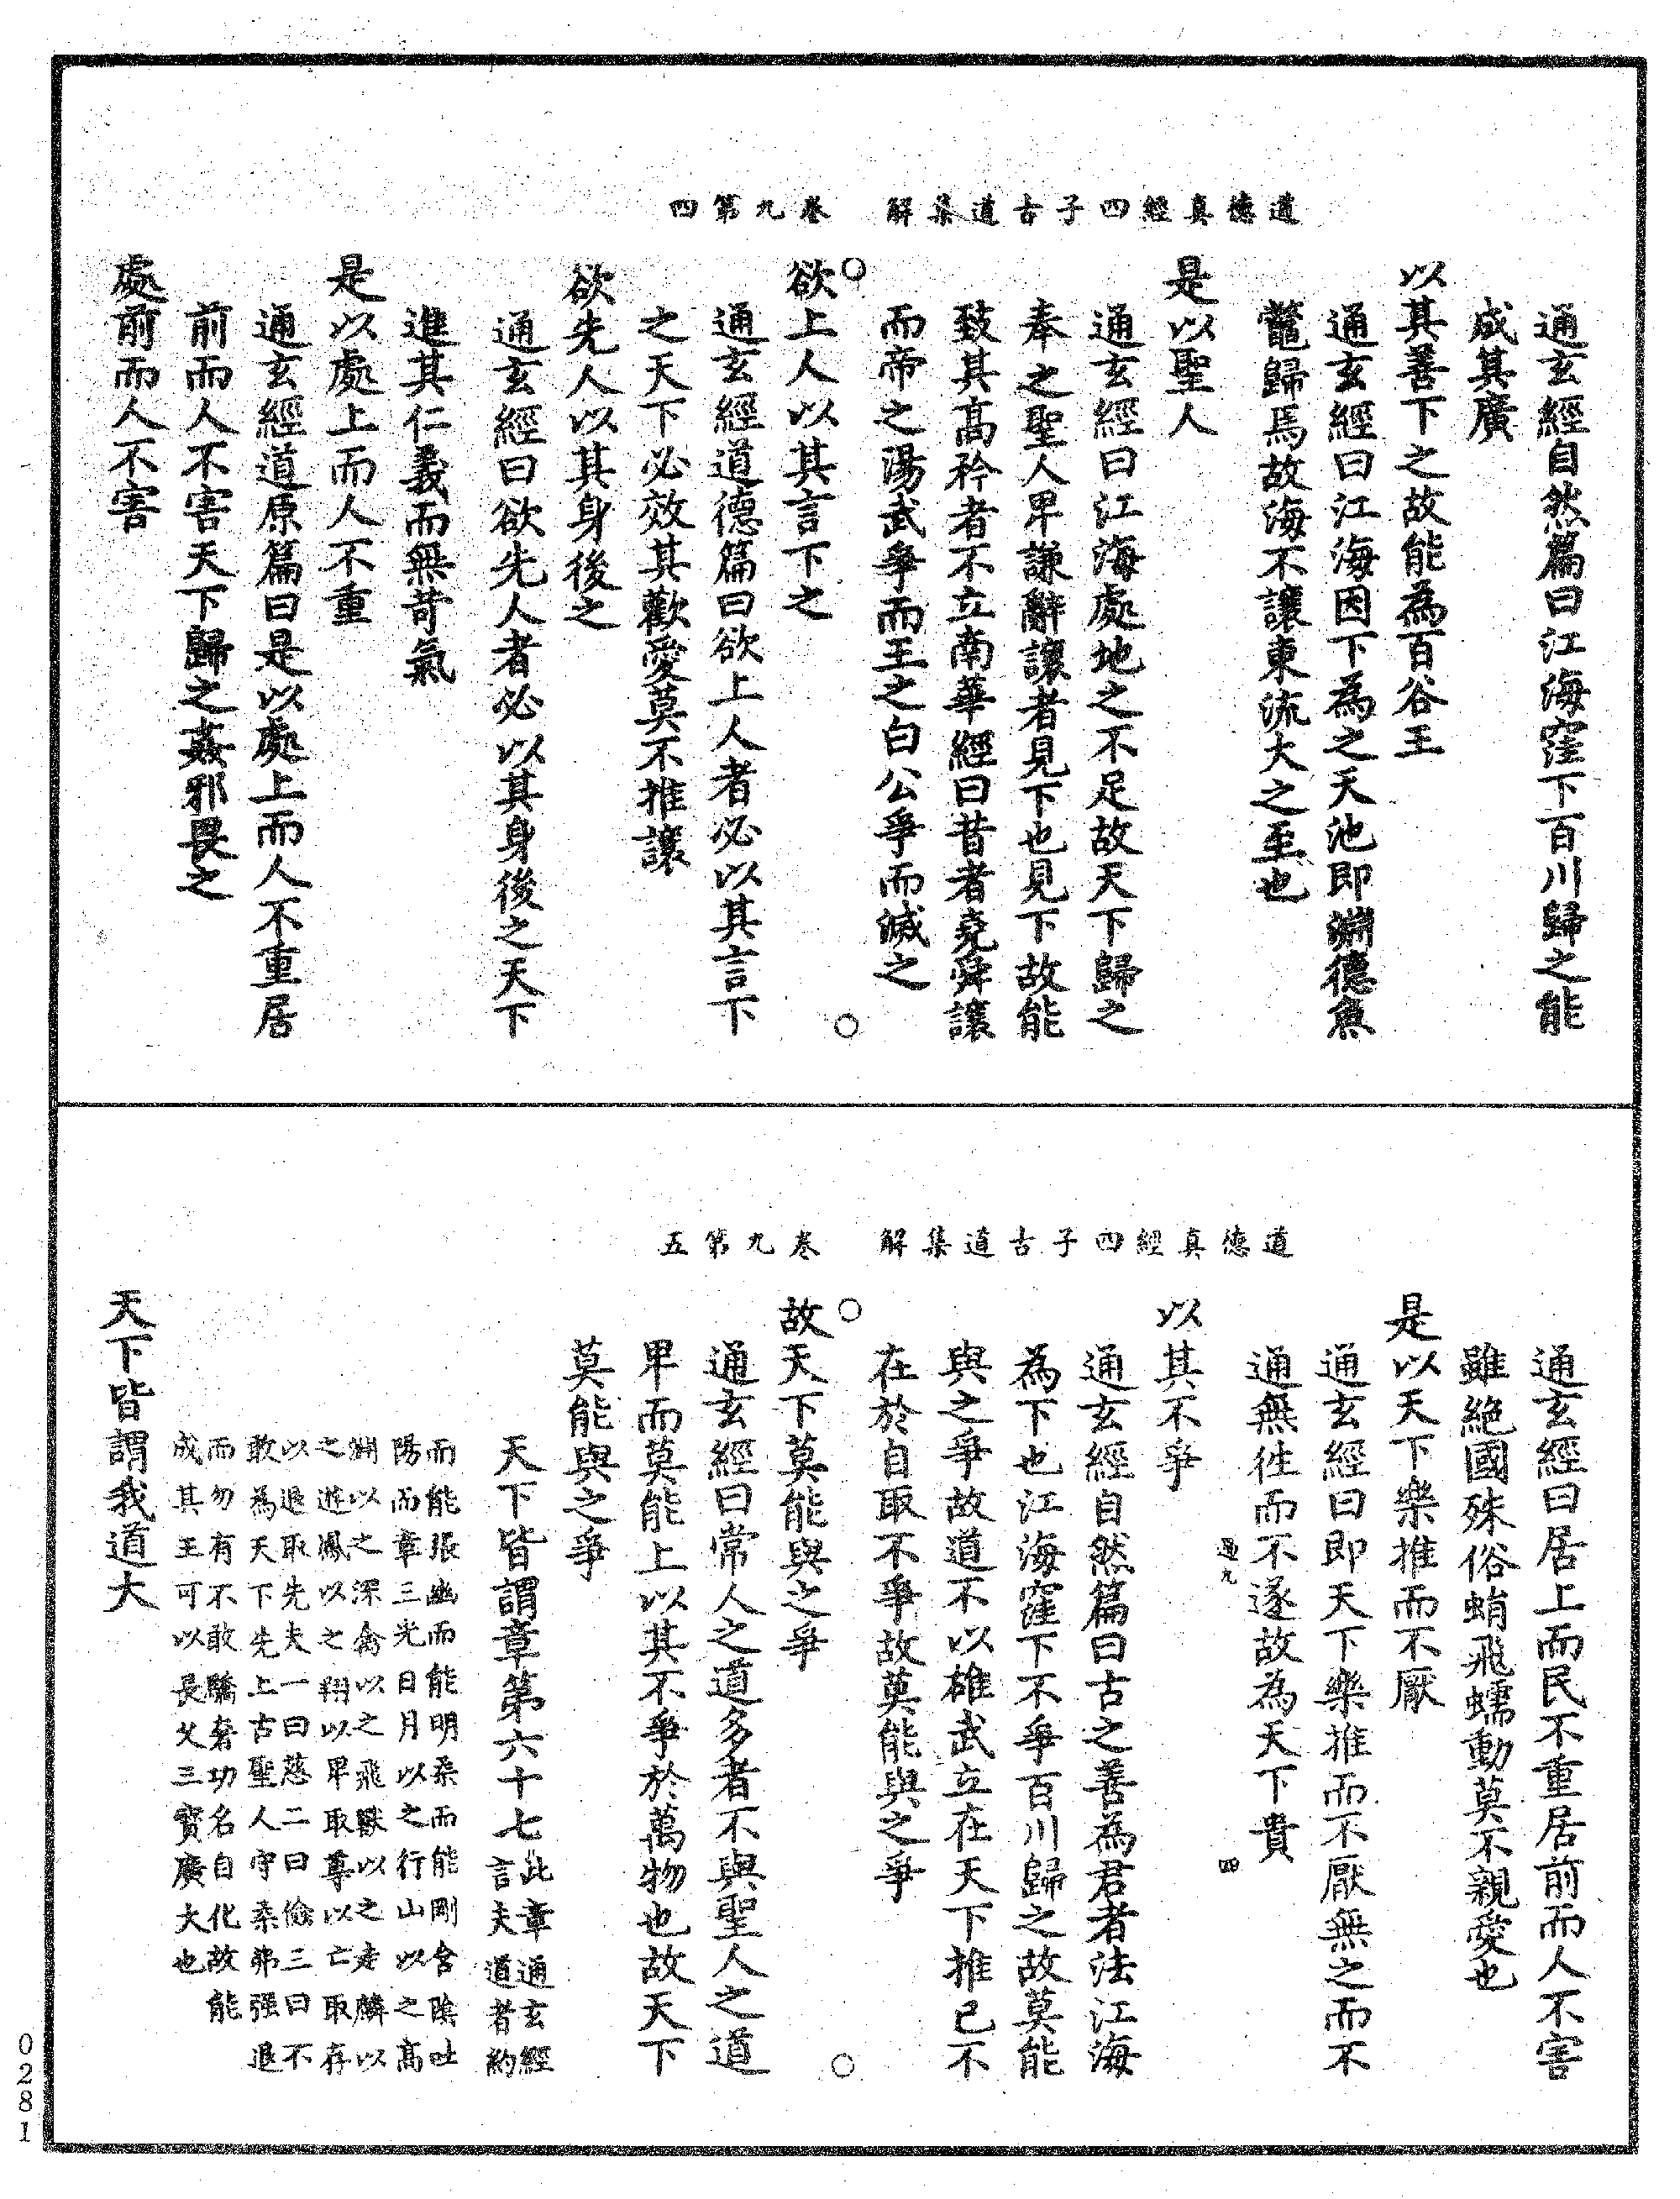 道德真經四子古道集解　卷九第四
通玄經自然篇曰江海窪下百川歸之能
成其廣
以其善下之故能為百谷王
通玄經曰江海因下為之天池即淵德魚
鼈歸焉故海不讓東流大之至也
是以聖人
通玄經曰江海處地之不足故天下歸之
奉之聖人卑謙辭讓者見下也見下故能
致其高矜者不立南華經曰昔者堯舜讓
而帝之湯武爭而王之白公爭而滅之
欲上人以其言下之
通玄經道德篇曰欲上人者必以其言下
之天下必效其歡愛莫不推讓
欲先人以其身後之
通玄經曰欲先人者必以其身後之天下
進其仁義而無苛氣
是以處上而人不重
通玄經道原篇曰是以處上而人不重居
前而人不害天下歸之姦邪畏之
處前而人不害
道德真經四子古道集解　卷九第五
通玄經曰居上而民不重居前而人不害
雖絕國殊俗蛸飛蠕動莫不親愛也
是以天下樂推而不厭
通玄經曰即天下樂推而不厭無之而不
通無徃而不遂故為天下貴
以其不爭
通玄經自然篇曰古之善為君者法江海
為下也江海窪下不爭百川歸之故莫能
與之爭故道不以雄武立在天下推己不
在於自取不爭故莫能與之爭
故天下莫能與之爭
通玄經曰常人之道多者不與聖人之道
卑而莫能上以其不爭於萬物也故天下
莫能與之爭
天下皆謂章第六十七此章通玄經
言夫道者約
而能張幽而能明柔而能剛含陰吐
陽而章三光日月以之行山以之高
淵以之深禽以之飛獸以之走麟以
之遊鳳以之翔以卑取尊以亡取存
以退取先夫一曰慈二曰儉三曰不
敢為天下先上古聖人守柔弗强退
而勿有不敢驕奢功名自化故能
成其王可以長久三寳廣大也
天下皆謂我道大
0281